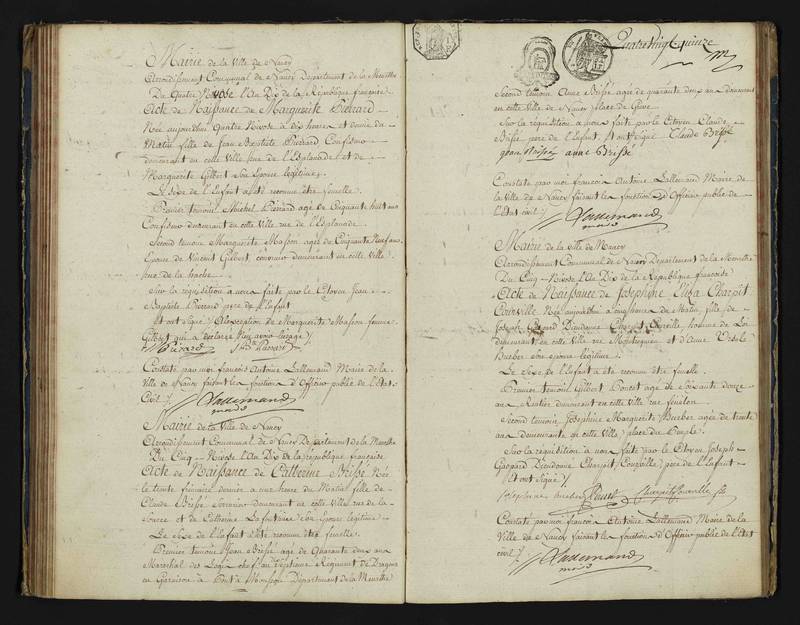 Mairie de la Ville de Nancy
Arrondissement Communal de Nancy Département de la Meurthe
Du Quatre Nivose l'An Dix de la République française
Acte de Naissance de Marguerite Pierrard
Née aujourdhui Quatre Nivose à dix heures et demie du
Matin fille de Jean Baptiste Pierrard Confiseur
demeurant en cette Ville rue de l'Esplanade et de
Marguerite Gilbert Son Epouse legitime
Le Sexe de l'Enfant a été reconnu être femelle
Premier temoin Michel Pierrard agé de Cinquante huit ans
Confiseur demeurant en cette Ville rue de l'Esplanade
Second temoin Marguerite Masson agée de Cinquante Neuf ans
Epouse de Vincent Gilbert demeurant en cette Ville
rue de la hache
Sur la requisition à nous faite par le Citoyen Jean
Baptiste Pierrard pere de l'Enfant
Et ont Signé à l'exception de Marguerite Masson femme
Gilbert qui a déclaré n'en avoir l'usage
Pierard Pierrard
Constaté par moi françois Antoine Lallemand Maire de la
Ville de Nancy faisant les fonctions d'Officier public de l'Etat
Civil
Lallemand
maire
Mairie de la Ville de Nancy
Arrondissement Communal de Nancy Département de la Meurthe
Du Cinq Nivose l'An Dix de la république française
Acte de Naissance de Catherine Brissé Née
le trente frimaire dernier à une heure du Matin fille de
Claude Brissé demeurant en cette Ville rue de la
source et de Catherine Lafontaine Son Epouse legitime
Le Sexe de l'Enfant a été reconnu être femelle
Premier temoin Jean Brissé agé de Quarante deux ans
Marechal des Logis chef au Septieme Régiment de Dragons
en Garnison à Pont à Mousson Département de la Meurthe
Quatrevingt Quinze
Second temoin Anne Brissé agée de quarante deux ans demeurant
en cette Ville de Nancy place de Greve
Sur la réquisition à nous faite par le Citoyen Claude
Brissé pere de l'Enfant Et ont Signé Claude Brissé
jean Brissé anne Brissé
Constaté par moi françois Antoine Lallemand Maire de
la Ville de Nancy faisant les fonctions d'Officier public de
l'Etat civil
Lallemand
maire
Mairie de la Ville de Nancy
Arrondissement Communal de Nancy Département de la Meurthe
Du Cinq Nivose l'An Dix de la République française
Acte de Naissance de Josephine Eliza Charpit
Courville Née aujourdhui à onze heures du Matin fille de
Joseph Gaspard Dieudonné Charpit Courville homme de Loi
demeurant en cette Ville rue Montesquieu et d'Anne Ursule
Burber son épouse legitime
Le Sexe de l'Enfant a été reconnu être femelle
Premier temoin Gilbert Poncet agé de Soixante douze
ans Rentier demeurant en cette Ville rue fénélon
Second temoin Josephine Marguerite Burber agée de trente
ans demeurante en cette Ville place du Peuple
Sur la requisition à nous faite par le Citoyen Joseph
Gaspard Dieudonné Charpit Courville pere de l'Enfant
Et ont Signé
Josephine Burber Poncet Charpit Courville
Constaté par moi françois Antoine Lallemand Maire de la
Ville de Nancy faisant les fonctions d'Officier public de l'Etat
civil
Lallemand
maire